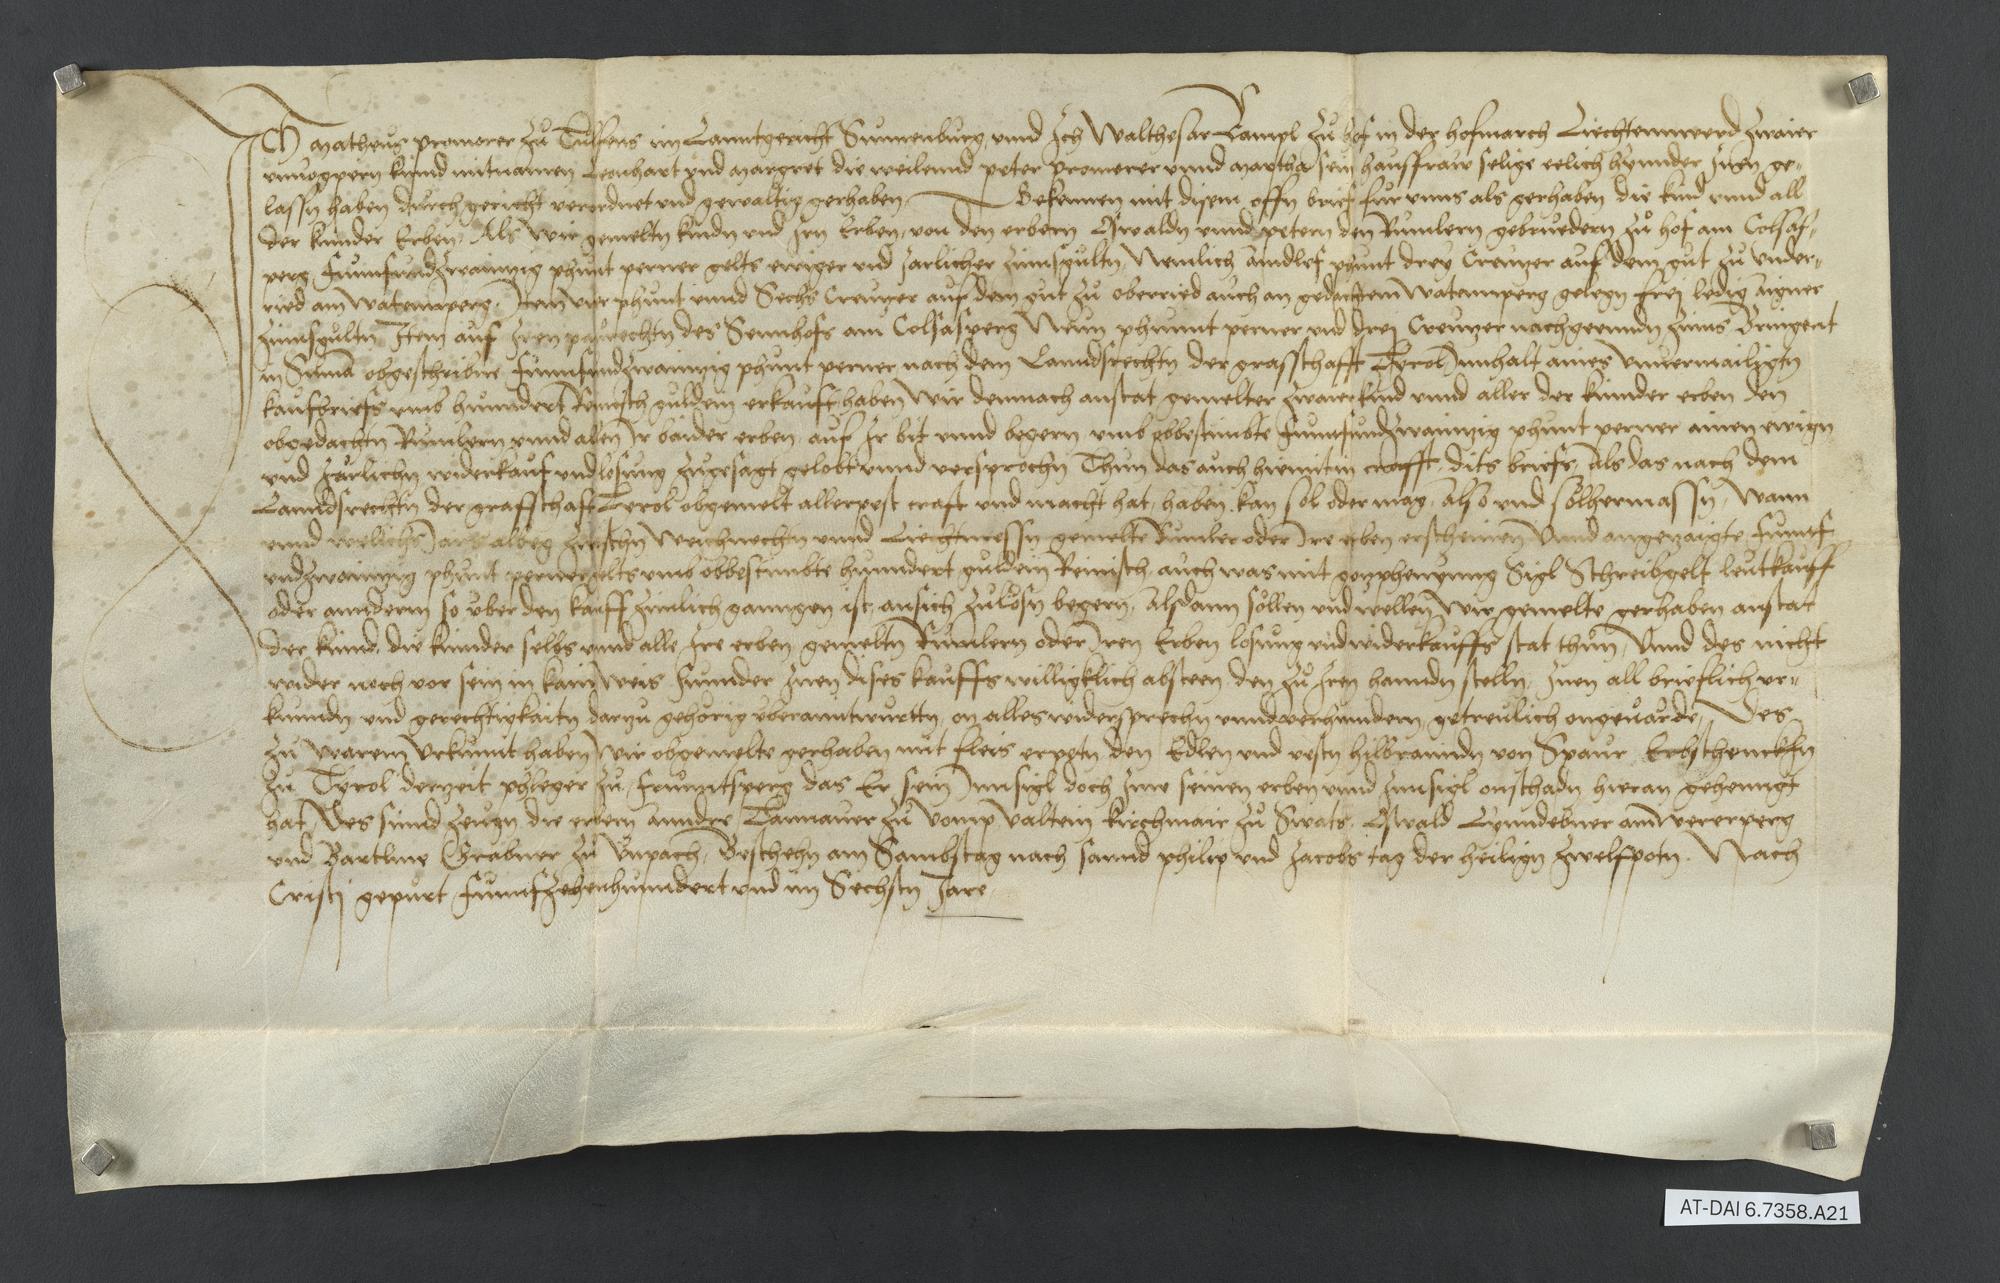 Ich Matheus promerer zů Tulfens im Lanntgericht Sunnenburg vnnd Ich Walthesar Lampl zů hof in der hofmarch Liechtennwerd Zwaier
vnuogpern kinnd mitnamen Leonhart vnd Margret die weilennd peter Promerer vnnd Martha sein hausfraw selige eelich kynnder Inen ge-
lassn haben durch gericht verordnet vnd gewaltig gerhaben. Bekennen mit disem offn brief für vnns als gerhaben die kind vnnd all
der kinnder Erben. Als wir gemeltn kindn vnd Irn Erben, von den erbern Oswaldn vnnd petern den Rumlern gebruedern zů hof am Colsas-
perg Funnfundzwainnzig phunt perner gelts ewiger vnd Jarlicher Zinnsgultn, Nemlich aindlef phunt drey Creuzer auf dem gut zů vnder-
ried am Watennperg. Item vier phunt vnnd Sechs Creuzer auf dem gut zů oberried auch an gedachtem Watennperg gelegn frey ledig aigner
Zinnsgultn Item auf Iren paurechtn des Sennhofs am Colsasperg Neun phunnt perner vnd drei Creuzer nachgeennds Zinns Bringent
in Suma obgeschribne funnfundzwainnzig phunt perner nach dem Lanndsrechtn der grafschafft Tyrol Innhalt aines vnuermailigtn
kaufbriefs vmb hunndert Reinisch guldein erkaufft haben Wir demnach anstat gemelter zwaier kind vnnd aller der kinnder erben den
obgedachtn Rumlern vnnd allen Ir baider erben auf Ir bit vnnd begern vmb obbestimbte funnfundzwainnzig phunt perner ainen ewign
vnd Järlichn widerkauf vnd losung zugesagt gelobt vnnd versprochn Thun das auch hiemit in crafft dits briefs, Als das nach dem
Lanndsrechtn der grafschaft Tyrol obgemelt allerpest craft vnd macht hat, haben kan sol oder mag, also vnd solhermassn, Wann
vnnd welichs Jars albeg zwischn Weichnechtn vnnd Liechtmessn gemelte Rumler oder Ire erben erscheinen Vnnd angezaigte funnf
vndzwainnzig phunt perner gelts vmb obbestimbte hunndert guldein Reinisch, auch was mit Sigl Schreibgelt leutkauff
oder annderm so vber den kauff zimlich ganngen ist, ansich zulosn begern, Alsdann sollen vnd wellen Wir gemelte gerhaben anstat
der kinnd, die kinnder selbs vnnd alle Ire erben gemeltn Rumlern oder Iren Erben losung vnd widerkauffs stat thun, Vnnd des nicht
wider noch vor sein in kain Weis Sunnder Inen dises kauffs williglich absteen den zů Iren hanndn stelln, Inen all brieflich vr-
kunndn vnd gerechtigkaitn darzu gehörig vberanntwurttn, on alles widersprechn vnnd verhinndern, getreulich ongeuärde, Des
zů Warem Vrkunnt haben Wir obgemelte gerhaben mit fleis erpetn den Edlen vnd vestn hilbranndn von Spaur Erbschenckhn
zů Tyrol derzeit phleger zů Frunntsperg das Er sein Innsigl doch Ime seinen erben vnnd Innsigl onschadn hieran gehenngt
hat, Des sinnd zeugn die erbern Anndre Tannauer zů Vomp Valtein Kirchmair zů Swats, Oswald Lynndebner am Wererperg
vnd Bartlme Grabner zů Vnpach, Beschehn am Sambstag nach sannd philip vnd Jacobs tag der heilign zwelfpotn. Nach
Cristi gepurt funnfzehenhunndert vnd im Sechstn Jare
AT-DAI 6.7358.A21